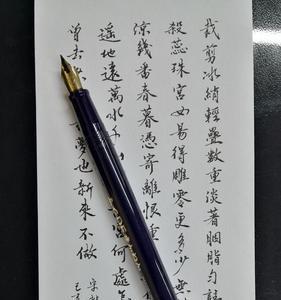 裁剪冰綃輕疊數重淡著胭脂勻
殺蕊珠宮女易得雕零更多少
涼幾番春暮憑寄離恨重
遙地遠萬水千 宮何處
曾去 夢也新來不做
宋